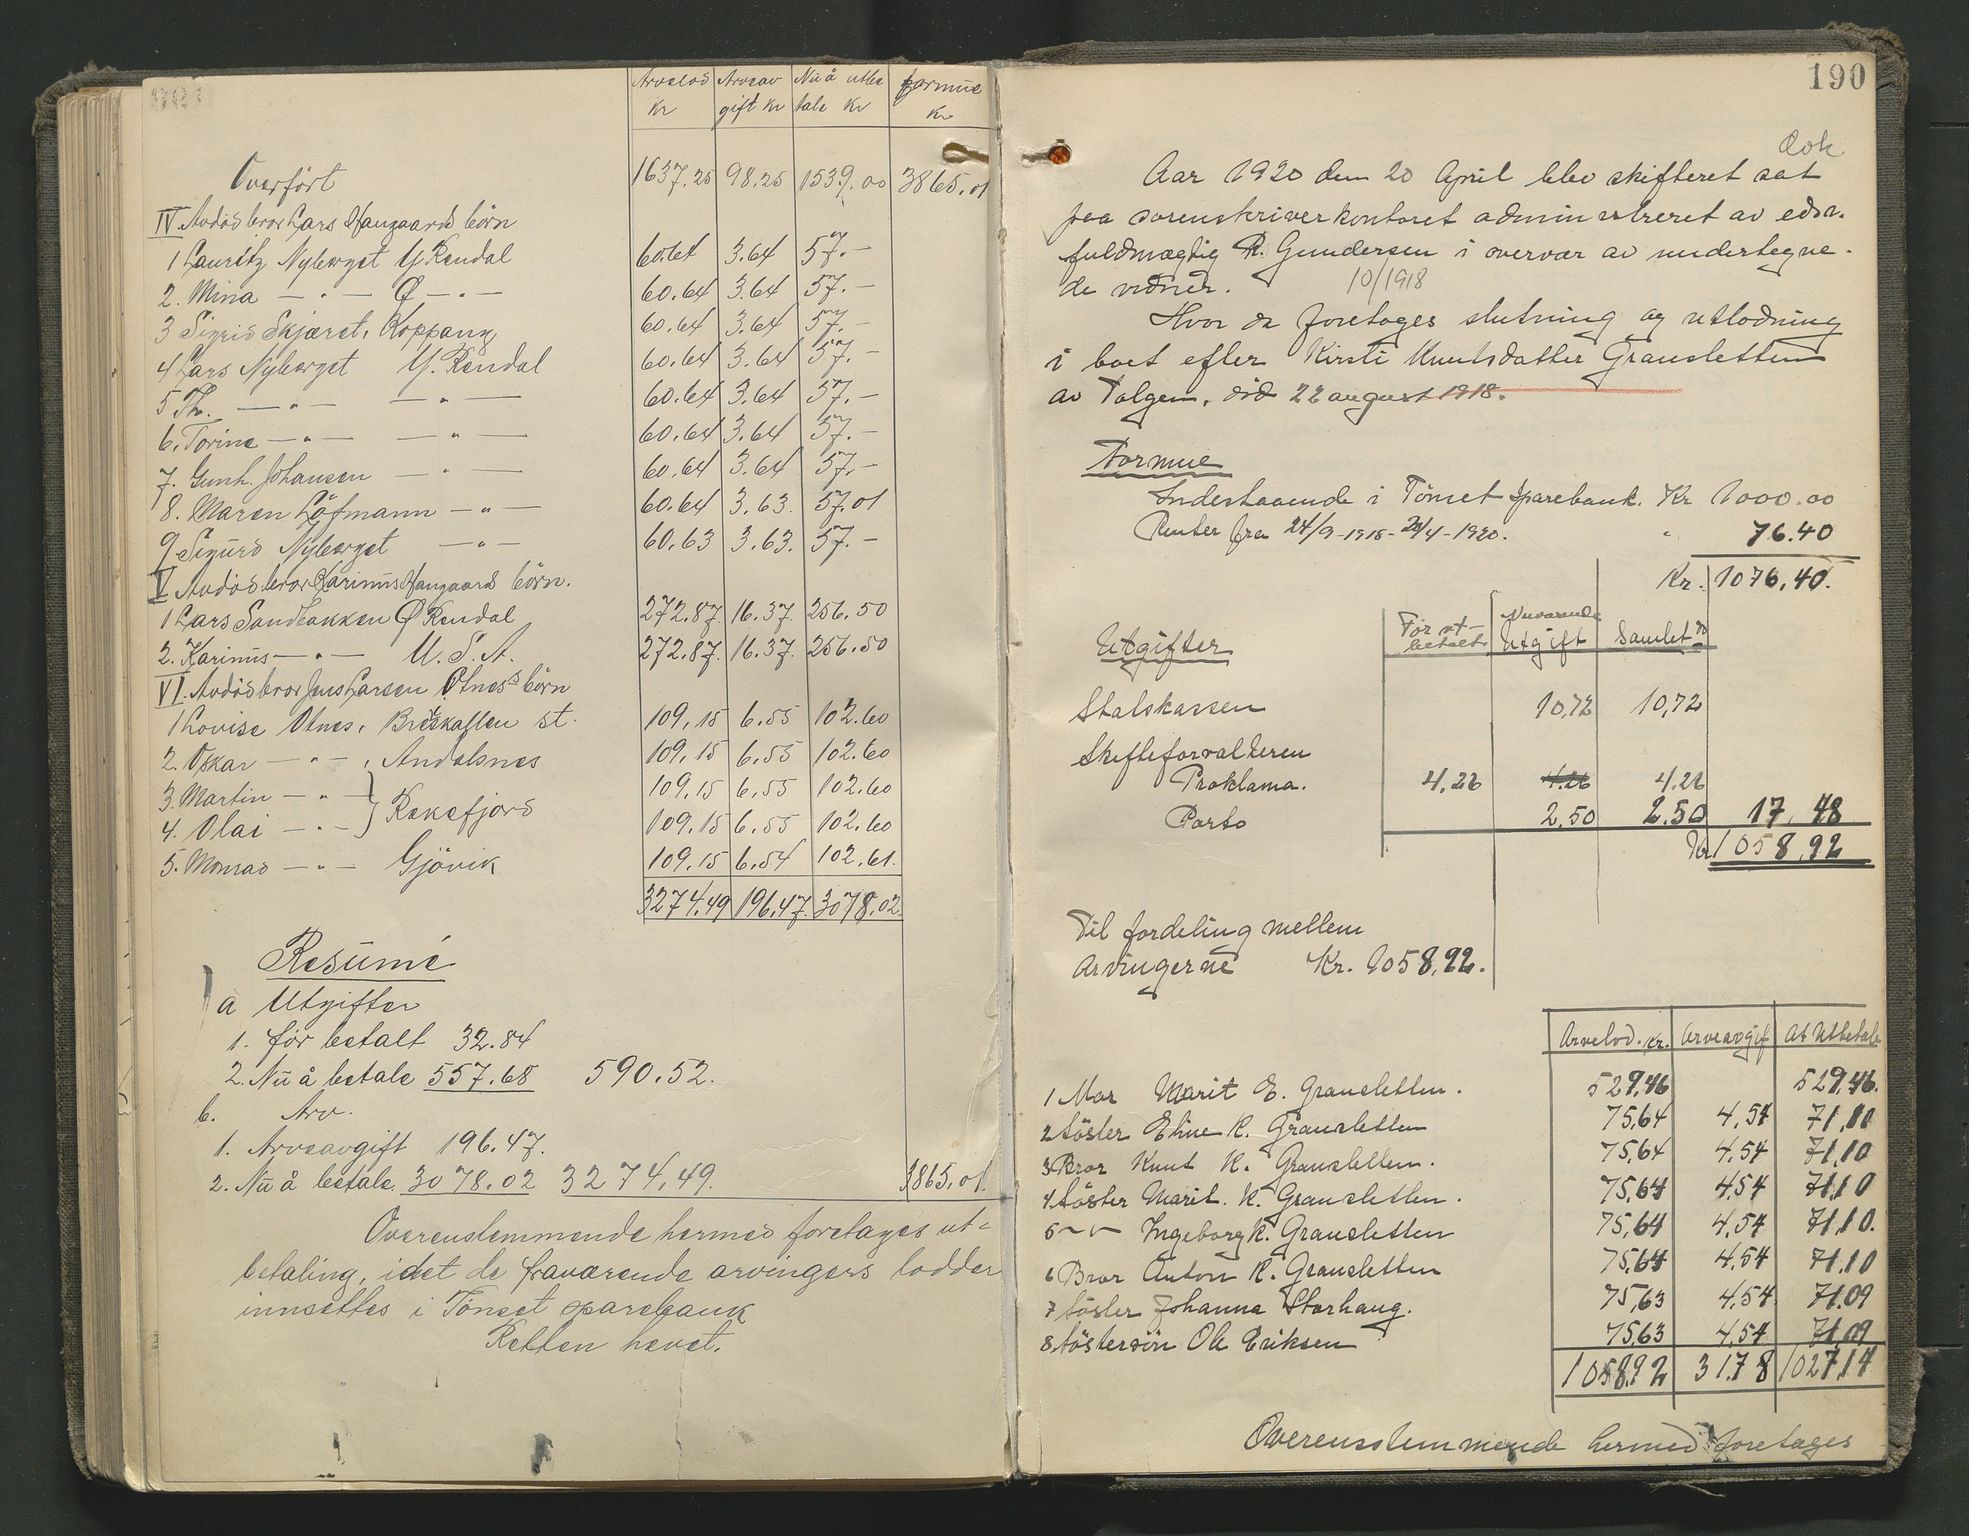 Arvelod kr | Arveavgift kr | Nu å utbetale kr | Formue kr
Overført 1637.25 98.25 1539.00 3865.01
IV Avdøds bror Lars Haugaards børn
1 Lauritz Nyberget Y Rendal 60.64 3.64 57.-
2. Mina — " — Ø — " — 60.64 3.64 57.-
3 Sigrid Skjæret, Koppang 60.64 3.64 57.-
4 Lars Nyberget Y. Rendal 60.64 3.64 57.-
5 Th. — " — — " — 60.64 3.64 57.-
6. Torine — " — — " — 60.64 3.64 57.-
7. Gunh. Johansen — " — 60.64 3.64 57.-
8. Maren Löfmann — " — 60.64 3.63. 57.01
9 Sigurd Nyberget — " — 60.63 3.63. 57.-
V Avdøds bror Karinus Haugaards børn.
1 Lars Sandbakken Ø Rendal 272.87. 16.37. 256.50
2. Karinus — " — U.S.A. 272.87. 16.37. 256.50
VI. Avdøds bror Jens Larsen Otnes's børn
1 Lovise Otnes, st. 109.15 6.55 102.60
2. Oskar — " —, Åndalsnes 109.15 6.55 102.60
3. Martin — " — 109.15 6.55 102.60
} Kekefjord
4. Olai — " — 109.15 6.55 102.60
5. Monrad — " — Gjövik 109.15 6.54 102.61.
3274.49 196.47. 3078.02.
Resümé
a Utgifter
1. før betalt 32.84
2. Nu å betale 557.68 590.52.
b. Arv.
1. Arveavgift 196.47.
2. Nu å betale 3078.02 3274.49. 3865.01.
Overenstemmende hermed foretages ut-
betaling, idet de fraværende arvingers lodder
innsettes i Tönset sparebank
Retten hevet.
190
Dok
Aar 1920 den 20 April blev skifteret sat
paa sorenskriverkontoret administreret av edsv.
fuldmægtig R. Gundersen i overvær av undertegne-
de vidner. 10/1918
Hvor da foretages slutning og utlodning
i boet efter Kirsti Knutsdatter Gransletten
av Tolgen, död 22 august 1918.
Formue
Indestaaende i Tönset sparebank. Kr 1000.00
Renter fra 24/9-1918-20/4-1920. " 76.40
Kr. 1076,40.
Utgifter Før ut-betalt Nuværende Utgift Samlet do
Statskassen 10,72 10,72
Skifteforvalteren
Proklama. 4,26 4.26 4.26
Porto 2,50 2.50 17,48
Kr 1058,92
Til fordeling mellem
arvingerne Kr. 1058,92.
Arvelod. Kr. | Arveavgif | At Utbetale
1 Mor Marit E. Gransletten. 529,46 529,46.
2 Söster Eline K. Gransletten 75,64 4,54 71,10
3 Bror Knut K. Gransletten. 75,64 4,54 71,10
4 Söster Marit. K. Gransletten. 75,64 4,54 71,10
5 — " — Ingeborg K. Gransletten 75,64 4,54 71,10.
6 Bror Anton K. Gransletten 75,64 4,54 71,10
7 Söster Johanna Storhaug. 75,63 4,54 71,09
8 Söstersön Ole Eriksen 75,63 4,54 71,09
1058,92 31,78 1027,14
Overensstemmende hermed foretages